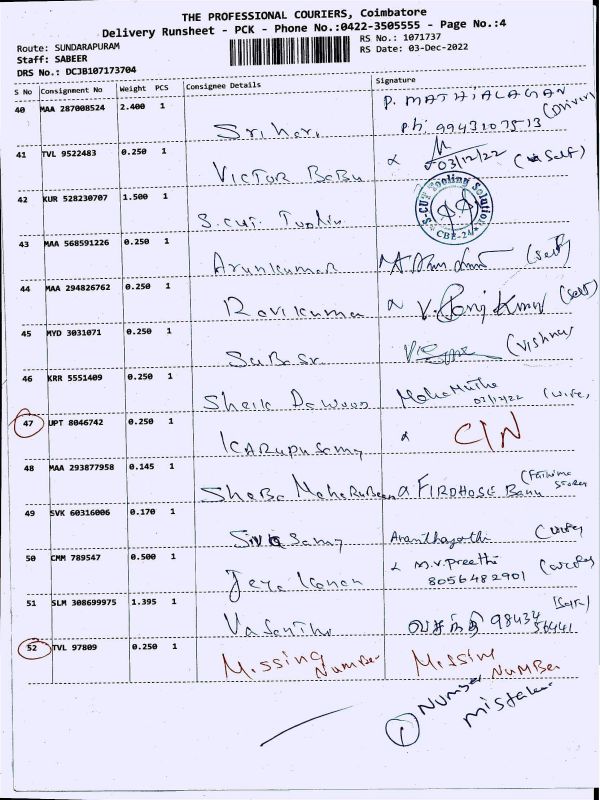 THE PROFESSIONAL COURIERS, Coimbatore
Delivery Runsheet - PCK - Phone No.:0422-3505555 - Page No.:4
Route: SUNDARAPURAM
RS No.: 1071737
Staff: SABEER
RS Date: 03-Dec-2022
DRS No.: DCJB107173704
S No Consignment No Weight PCS Consignee Details Signature
40 MAA 287008524 2.400 1
P. MATHIALAGAN
Srihari
Ph: (Driver)
41 TVL 9522483 0.250 1
03/12/22 (Self)
Victor Babu
42 KUR 528230707 1.500 1
S-CUT Tooling Solution
CBE-24
S.cut
43 MAA 568591226 0.250 1
Arunkumar
(self)
44 MAA 294826762 0.250 1
Ravikumar
(self)
45 MYD 3031071 0.250 1
(Vishnu)
46 KRR 5551409 0.250 1
Sheik Dawood
02/12/22 (wife)
47 UPT 8046742 0.250 1
C/N
Karupusamy
48 MAA 293877958 0.145 1
FIRDHOSE Banu
49 SVK 60316006 0.170 1
Sivasamy
50 CMM 789547 0.500 1
M.V. Preethi
8056482901
51 SLM 308699975 1.395 1
வசந்தி 98434
56441
52 TVL 97809 0.250 1
Missing Number Missing Number
1 Number
mistake